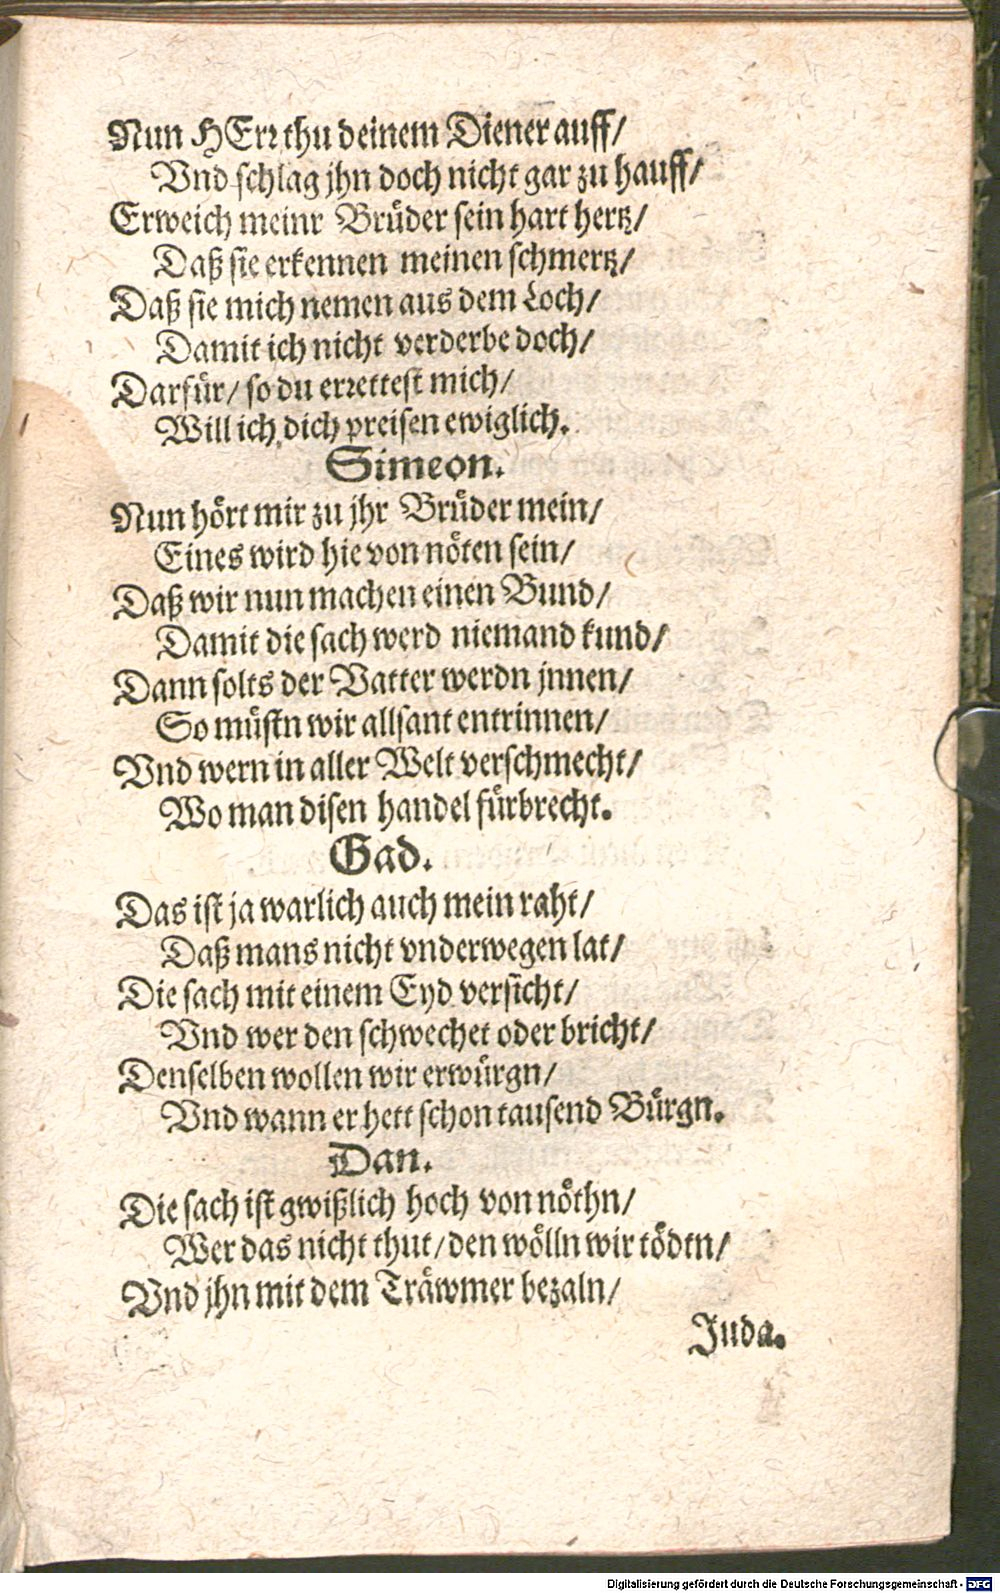 Nun HErr thu deinem Diener auff/
Vnd schlag jhn doch nicht gar zu hauff/
Erweich meinr Brüder sein hart hertz/
Daß sie erkennen meinen schmertz/
Daß sie mich nemen aus dem Loch/
Damit ich nicht verderbe doch/
Darfür/ so du errettest mich/
Will ich dich preisen ewiglich.
Simeon.
Nun hört mir zu jhr Brüder mein/
Eines wird hie von nöten sein/
Daß wir nun machen einen Bund/
Damit die sach werd niemand kund/
Dann solts der Vatter werdn jnnen/
So müstn wir allsant entrinnen/
Vnd wern in aller Welt verschmecht/
Wo man disen handel fürbrecht.
Gad.
Das ist ja warlich auch mein raht/
Daß mans nicht vnderwegen lat/
Die sach mit einem Eyd versicht/
Vnd wer den schwechet oder bricht/
Denselben wollen wir erwürgn/
Vnd wann er hett schon tausend Bürgn.
Dan.
Die sach ist gwißlich hoch von nöthn/
Wer das nicht thut/ den wölln wir tödtn/
Vnd jhn mit dem Träwmer bezaln/
Juda.
Digitalisierung gefördert durch die Deutsche Forschungsgemeinschaft - DFG